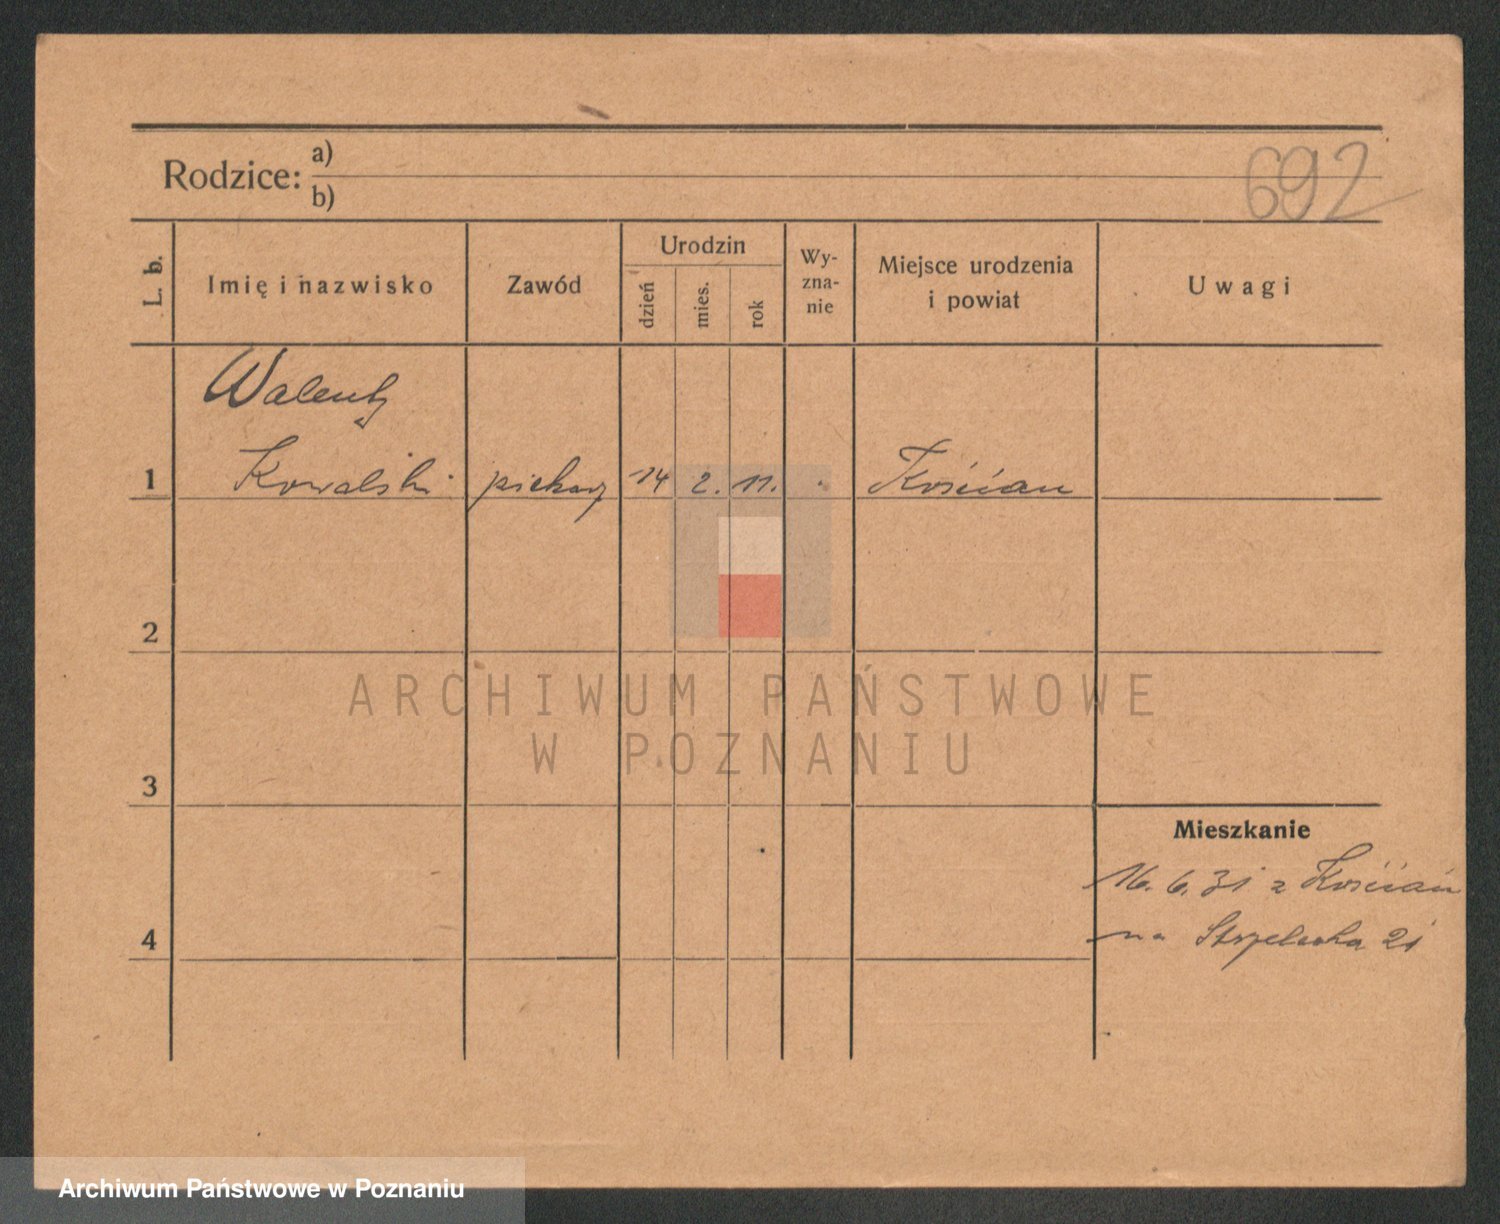 Rodzice:
a)
b)
692
L. b.
Imię i nazwisko
Zawód
Urodzin
dzień
mies.
rok
Wy-
zna-
nie
Miejsce urodzenia
i powiat
Uwagi
Walenty
1 Kowalski piekarz 14 2. 11. Kościan
2
3
Mieszkanie
16. 6. 31 z Kościan
4
na Strzelecka 21
ARCHIWUM PAŃSTWOWE
W POZNANIU
Archiwum Państwowe w Poznaniu